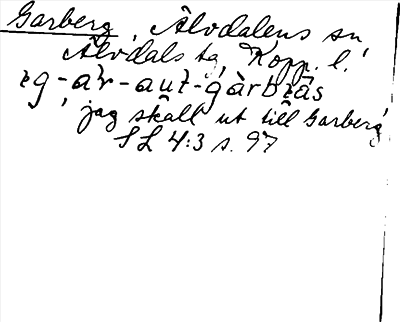 Garberg, Älvdalens sn
Älvdals tg, Kopp. l.
jag skall ut till Garberg
SL 4:3 s. 97